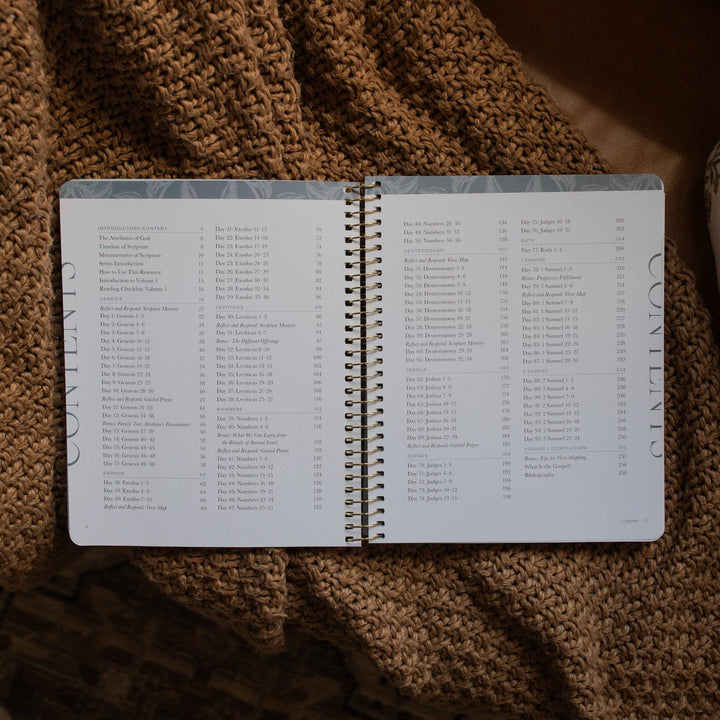 CONTENTS
INTRODUCTORY CONTENT
The Attributes of God 6
Timeline of Scripture 8
Metanarrative of Scripture 10
Series Introduction 12
How to Use This Resource 13
Introduction to Volume 1 15
Reading Checklist, Volume 1
GENESIS
Reflect and Respond: Scripture Memory 21
Day 1: Genesis 1-3 22
Day 2: Genesis 4-6 24
Day 3: Genesis 7-9 26
Day 4: Genesis 10-12 28
Day 5: Genesis 13-15 30
Day 6: Genesis 16-18 32
Day 7: Genesis 19-21 34
Day 8: Genesis 22-24 36
Day 9: Genesis 25-27 38
Day 10: Genesis 28-30 40
Reflect and Respond: Guided Prayer
Day 11: Genesis 31-33 44
Day 12: Genesis 34-36
Bonus: Family Tree: Abraham's Descendants 49
Day 13: Genesis 37-39 50
Day 14: Genesis 40-42 52
Day 15: Genesis 43-45 54
Day 16: Genesis 46-48 56
Day 17: Genesis 49-50 58
EXODUS 60
Day 18: Exodus 1-3 62
Day 19: Exodus 4-6 64
Day 20: Exodus 7-10 66
Reflect and Respond: Verse Map 69
Day 21: Exodus 11-13 70
Day 22: Exodus 14-16 72
Day 23: Exodus 17-19 74
Day 24: Exodus 20-23 76
Day 25: Exodus 24-26 78
Day 26: Exodus 27-29 80
Day 27: Exodus 30-31 82
Day 28: Exodus 32-34 84
Day 29: Exodus 35-40 86
LEVITICUS
Day 30: Leviticus 1-3 90
Reflect and Respond: Scripture Memory 93
Day 31: Leviticus 4-7 94
Bonus: The Different Offerings 97
Day 32: Leviticus 8-10 98
Day 33: Leviticus 11-12 100
Day 34: Leviticus 13-15 102
Day 35: Leviticus 16-18 104
Day 36: Leviticus 19-20 106
Day 37: Leviticus 21-24 108
Day 38: Leviticus 25-27 110
NUMBERS 112
Day 39: Numbers 1-3 114
Day 40: Numbers 4-6 116
Bonus: What We Can Learn from
the Rituals of Ancient Israel 118
Reflect and Respond: Guided Prayer 119
Day 41: Numbers 7-9 120
Day 42: Numbers 10-12 122
Day 43: Numbers 13-15 124
Day 44: Numbers 16-18 126
Day 45: Numbers 19-21 128
Day 46: Numbers 22-24 130
Day 47: Numbers 25-27 132
Day 48: Numbers 28-30 134
Day 49: Numbers 31-33 136
Day 50: Numbers 34-36 138
DEUTERONOMY 140
Reflect and Respond: Verse Map 143
Day 51: Deuteronomy 1-3 144
Day 52: Deuteronomy 4-6 146
Day 53: Deuteronomy 7-9 148
Day 54: Deuteronomy 10-12 150
Day 55: Deuteronomy 13-15 152
Day 56: Deuteronomy 16-18 154
Day 57: Deuteronomy 19-21 156
Day 58: Deuteronomy 22-24 158
Day 59: Deuteronomy 25-28 160
Reflect and Respond: Scripture Memory 163
Day 60: Deuteronomy 29-31 164
Day 61: Deuteronomy 32-34 166
JOSHUA 168
Day 62: Joshua 1-3 170
Day 63: Joshua 4-6 172
Day 64: Joshua 7-9 174
Day 65: Joshua 10-12 176
Day 66: Joshua 13-15 178
Day 67: Joshua 16-18 180
Day 68: Joshua 19-21 182
Day 69: Joshua 22-24 184
Reflect and Respond: Guided Prayer 187
JUDGES 188
Day 70: Judges 1-3 190
Day 71: Judges 4-6 192
Day 72: Judges 7-9 194
Day 73: Judges 10-12 196
Day 74: Judges 13-15 198
Day 75: Judges 16-18 200
Day 76: Judges 19-21 202
RUTH 204
Day 77: Ruth 1-4 206
1 SAMUEL 208
Day 78: 1 Samuel 1-3 210
Bonus: Progressive Fulfillment 213
Day 79: 1 Samuel 4-6 214
Reflect and Respond: Verse Map 217
Day 80: 1 Samuel 7-9 218
Day 81: 1 Samuel 10-12 220
Day 82: 1 Samuel 13-15 222
Day 83: 1 Samuel 16-18 224
Day 84: 1 Samuel 19-21 226
Day 85: 1 Samuel 22-24 228
Day 86: 1 Samuel 25-27 230
Day 87: 1 Samuel 28-31 232
2 SAMUEL 234
Day 88: 2 Samuel 1-3 236
Day 89: 2 Samuel 4-6 238
Day 90: 2 Samuel 7-9 240
Day 91: 2 Samuel 10-12 242
Day 92: 2 Samuel 13-15 244
Day 93: 2 Samuel 16-18 246
Day 94: 2 Samuel 19-21 248
Day 95: 2 Samuel 22-24 250
VOLUME 1 CONCLUSION 252
Bonus: Tips for Verse Mapping 253
What Is the Gospel? 256
Bibliography 258
CONTENTS